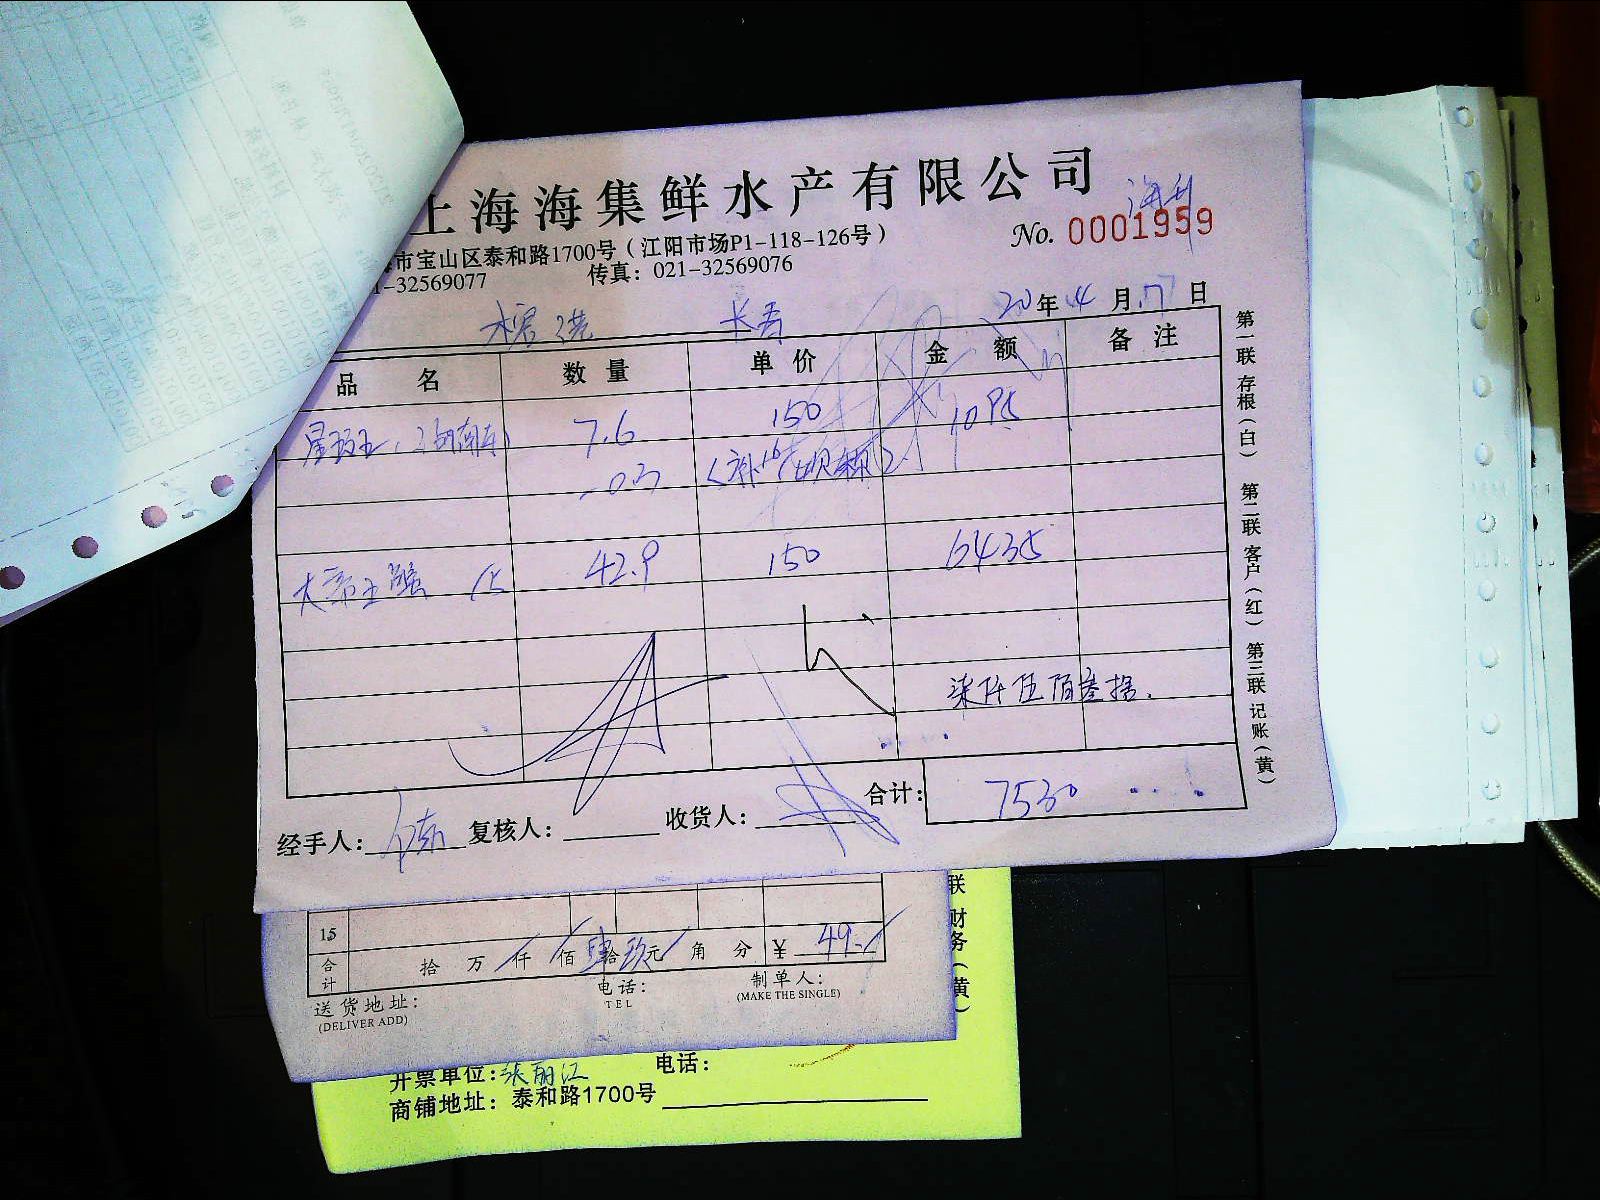 上海海集鲜水产有限公司
No. 0001959
市宝山区泰和路1700号（江阳市场P1-118-126号）
-32569077 传真：021-32569076
长寿 20年4月17日
品名 数量 单价 金额 备注
7.6 150 1095
-03
大帝王蟹 42.9 150 6435
柒仟伍佰叁拾.
合计： 7530
经手人： 复核人： 收货人：
第一联 存根（白） 第二联 客户（红） 第三联 记账（黄）
15
合计 拾 万 仟 佰 肆拾玖元 角 分 ¥ 49.-
送货地址： 电话： 制单人：
(DELIVER ADD) TEL (MAKE THE SINGLE)
联 财务（黄）
开票单位：张丽江 电话：
商铺地址：泰和路1700号